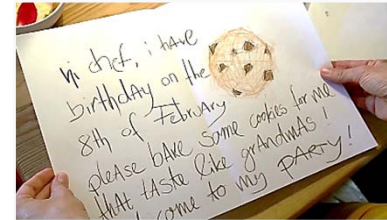 hi chef, i hAve
birthdAy on the
8th of FebruAry
pleAse bAke some cookies for me
thAt tAste like grAndmAs !
come to my pArty !